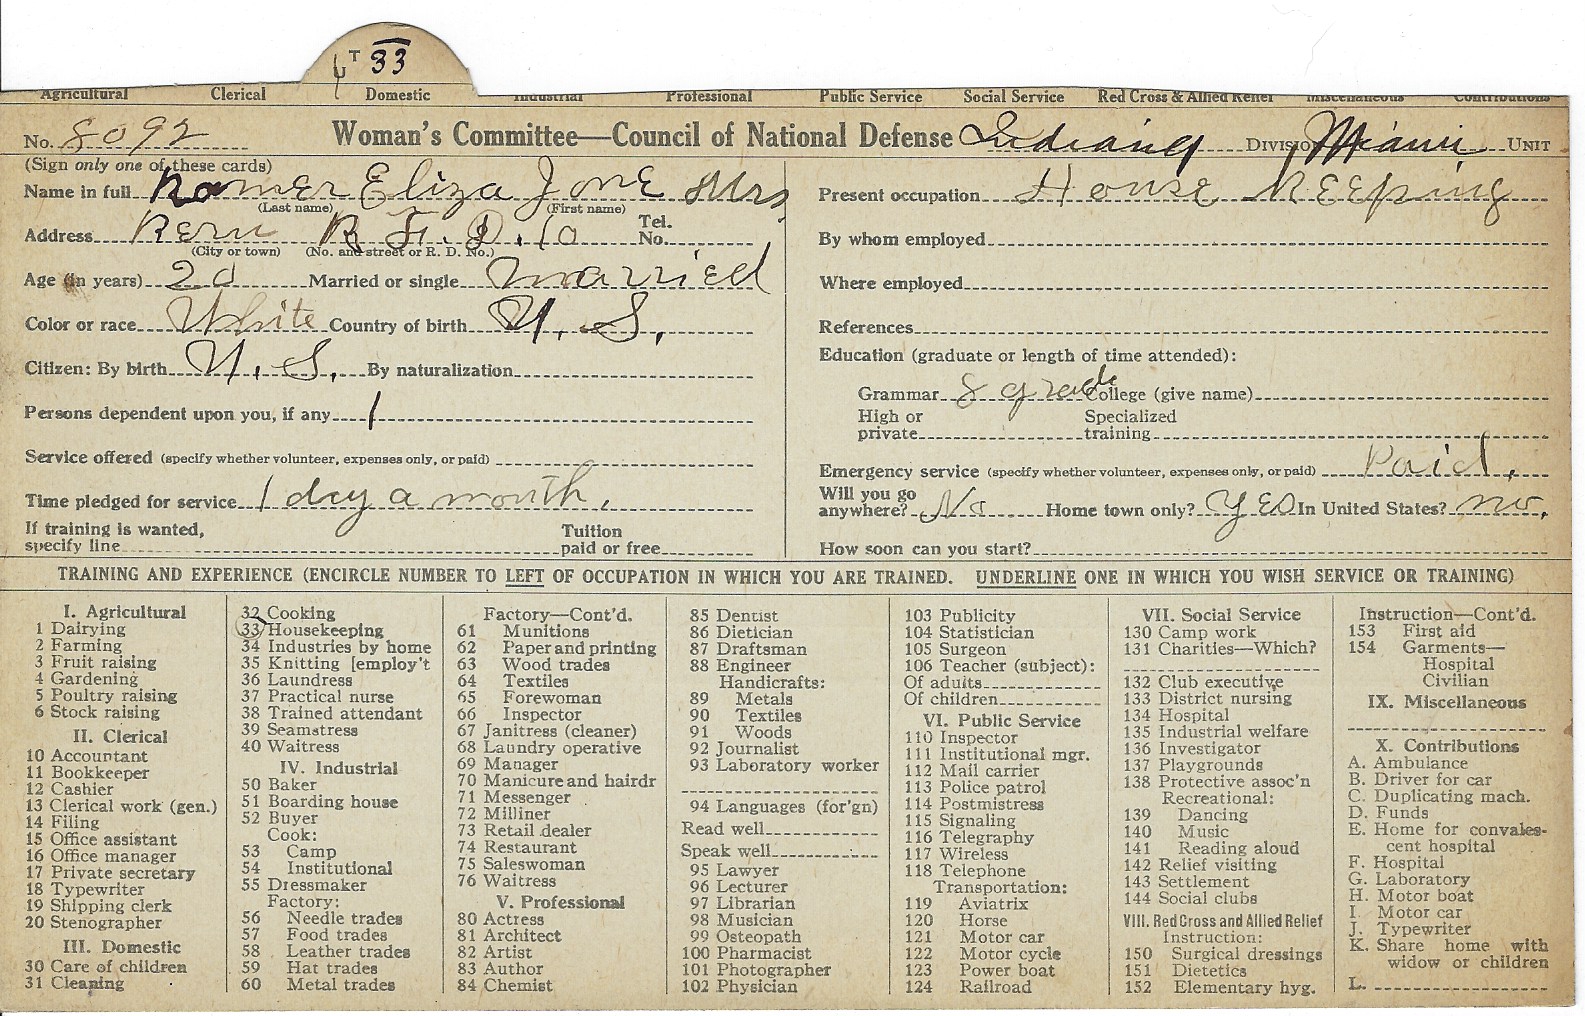 UT 33
Agricultural Clerical Domestic Industrial Professional Public Service Social Service Red Cross & Allied Relief Miscellaneous Contributions
No. 8092 Woman's Committee—Council of National Defense Indiana Division Miami Unit
(Sign only one of these cards)
Name in full Ramer Eliza Jone Mrs
(Last name) (First name)
Address Peru R. F. D. 10 Tel. No.
(City or town) (No. and street or R. D. No.)
Age (in years) 20 Married or single married
Color or race White Country of birth U. S.
Citizen: By birth U. S. By naturalization
Persons dependent upon you, if any 1
Service offered (specify whether volunteer, expenses only, or paid)
Time pledged for service 1 day a month.
If training is wanted,
specify line
Tuition
paid or free
Present occupation House Keeping
By whom employed
Where employed
References
Education (graduate or length of time attended):
Grammar 8 grade College (give name)
High or
private
Specialized
training
Emergency service (specify whether volunteer, expenses only, or paid) Paid.
Will you go
anywhere? No Home town only? Yes In United States? no.
How soon can you start?
TRAINING AND EXPERIENCE (ENCIRCLE NUMBER TO LEFT OF OCCUPATION IN WHICH YOU ARE TRAINED. UNDERLINE ONE IN WHICH YOU WISH SERVICE OR TRAINING)
I. Agricultural
1 Dairying
2 Farming
3 Fruit raising
4 Gardening
5 Poultry raising
6 Stock raising
II. Clerical
10 Accountant
11 Bookkeeper
12 Cashier
13 Clerical work (gen.)
14 Filing
15 Office assistant
16 Office manager
17 Private secretary
18 Typewriter
19 Shipping clerk
20 Stenographer
III. Domestic
30 Care of children
31 Cleaning
32 Cooking
33 Housekeeping
34 Industries by home
35 Knitting [employ't
36 Laundress
37 Practical nurse
38 Trained attendant
39 Seamstress
40 Waitress
IV. Industrial
50 Baker
51 Boarding house
52 Buyer
Cook:
53 Camp
54 Institutional
55 Dressmaker
Factory:
56 Needle trades
57 Food trades
58 Leather trades
59 Hat trades
60 Metal trades
Factory—Cont'd.
61 Munitions
62 Paper and printing
63 Wood trades
64 Textiles
65 Forewoman
66 Inspector
67 Janitress (cleaner)
68 Laundry operative
69 Manager
70 Manicure and hairdr
71 Messenger
72 Milliner
73 Retail dealer
74 Restaurant
75 Saleswoman
76 Waitress
V. Professional
80 Actress
81 Architect
82 Artist
83 Author
84 Chemist
85 Dentist
86 Dietician
87 Draftsman
88 Engineer
Handicrafts:
89 Metals
90 Textiles
91 Woods
92 Journalist
93 Laboratory worker
94 Languages (for'gn)
Read well
Speak well
95 Lawyer
96 Lecturer
97 Librarian
98 Musician
99 Osteopath
100 Pharmacist
101 Photographer
102 Physician
103 Publicity
104 Statistician
105 Surgeon
106 Teacher (subject):
Of adults
Of children
VI. Public Service
110 Inspector
111 Institutional mgr.
112 Mail carrier
113 Police patrol
114 Postmistress
115 Signaling
116 Telegraphy
117 Wireless
118 Telephone
Transportation:
119 Aviatrix
120 Horse
121 Motor car
122 Motor cycle
123 Power boat
124 Railroad
VII. Social Service
130 Camp work
131 Charities—Which?
132 Club executive
133 District nursing
134 Hospital
135 Industrial welfare
136 Investigator
137 Playgrounds
138 Protective assoc'n
Recreational:
139 Dancing
140 Music
141 Reading aloud
142 Relief visiting
143 Settlement
144 Social clubs
VIII. Red Cross and Allied Relief
Instruction:
150 Surgical dressings
151 Dietetics
152 Elementary hyg.
Instruction—Cont'd.
153 First aid
154 Garments—
Hospital
Civilian
IX. Miscellaneous
X. Contributions
A. Ambulance
B. Driver for car
C. Duplicating mach.
D. Funds
E. Home for convales-
cent hospital
F. Hospital
G. Laboratory
H. Motor boat
I. Motor car
J. Typewriter
K. Share home with
widow or children
L.